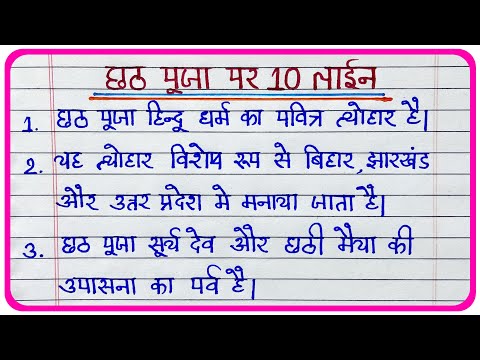 छठ पूजा पर 10 लाईन
1. छठ पूजा हिन्दू धर्म का पवित्र त्योहार है।
2. यह त्योहार विशेष रूप से बिहार, झारखंड
और उत्तर प्रदेश मे मनाया जाता है।
3. छठ पूजा सूर्य देव और छठी मैया की
उपासना का पर्व है।